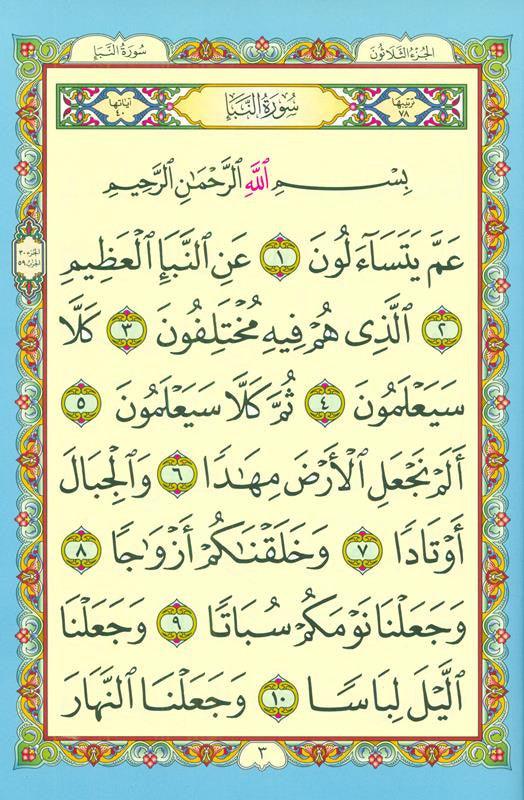 الجزء الثلاثون
سورة النبإ
ترتيبها ٧٨
سُورَةُ النَّبَإِ
آياتها ٤٠
بِسْمِ ٱللَّهِ ٱلرَّحْمَـٰنِ ٱلرَّحِيمِ
الجزء ٣٠
الحزب ٥٩
عَمَّ يَتَسَآءَلُونَ ١ عَنِ ٱلنَّبَإِ ٱلْعَظِيمِ
٢ ٱلَّذِى هُمْ فِيهِ مُخْتَلِفُونَ ٣ كَلَّا
سَيَعْلَمُونَ ٤ ثُمَّ كَلَّا سَيَعْلَمُونَ ٥
أَلَمْ نَجْعَلِ ٱلْأَرْضَ مِهَـٰدًا ٦ وَٱلْجِبَالَ
أَوْتَادًا ٧ وَخَلَقْنَـٰكُمْ أَزْوَٰجًا ٨
وَجَعَلْنَا نَوْمَكُمْ سُبَاتًا ٩ وَجَعَلْنَا
ٱلَّيْلَ لِبَاسًا ١٠ وَجَعَلْنَا ٱلنَّهَارَ
٣